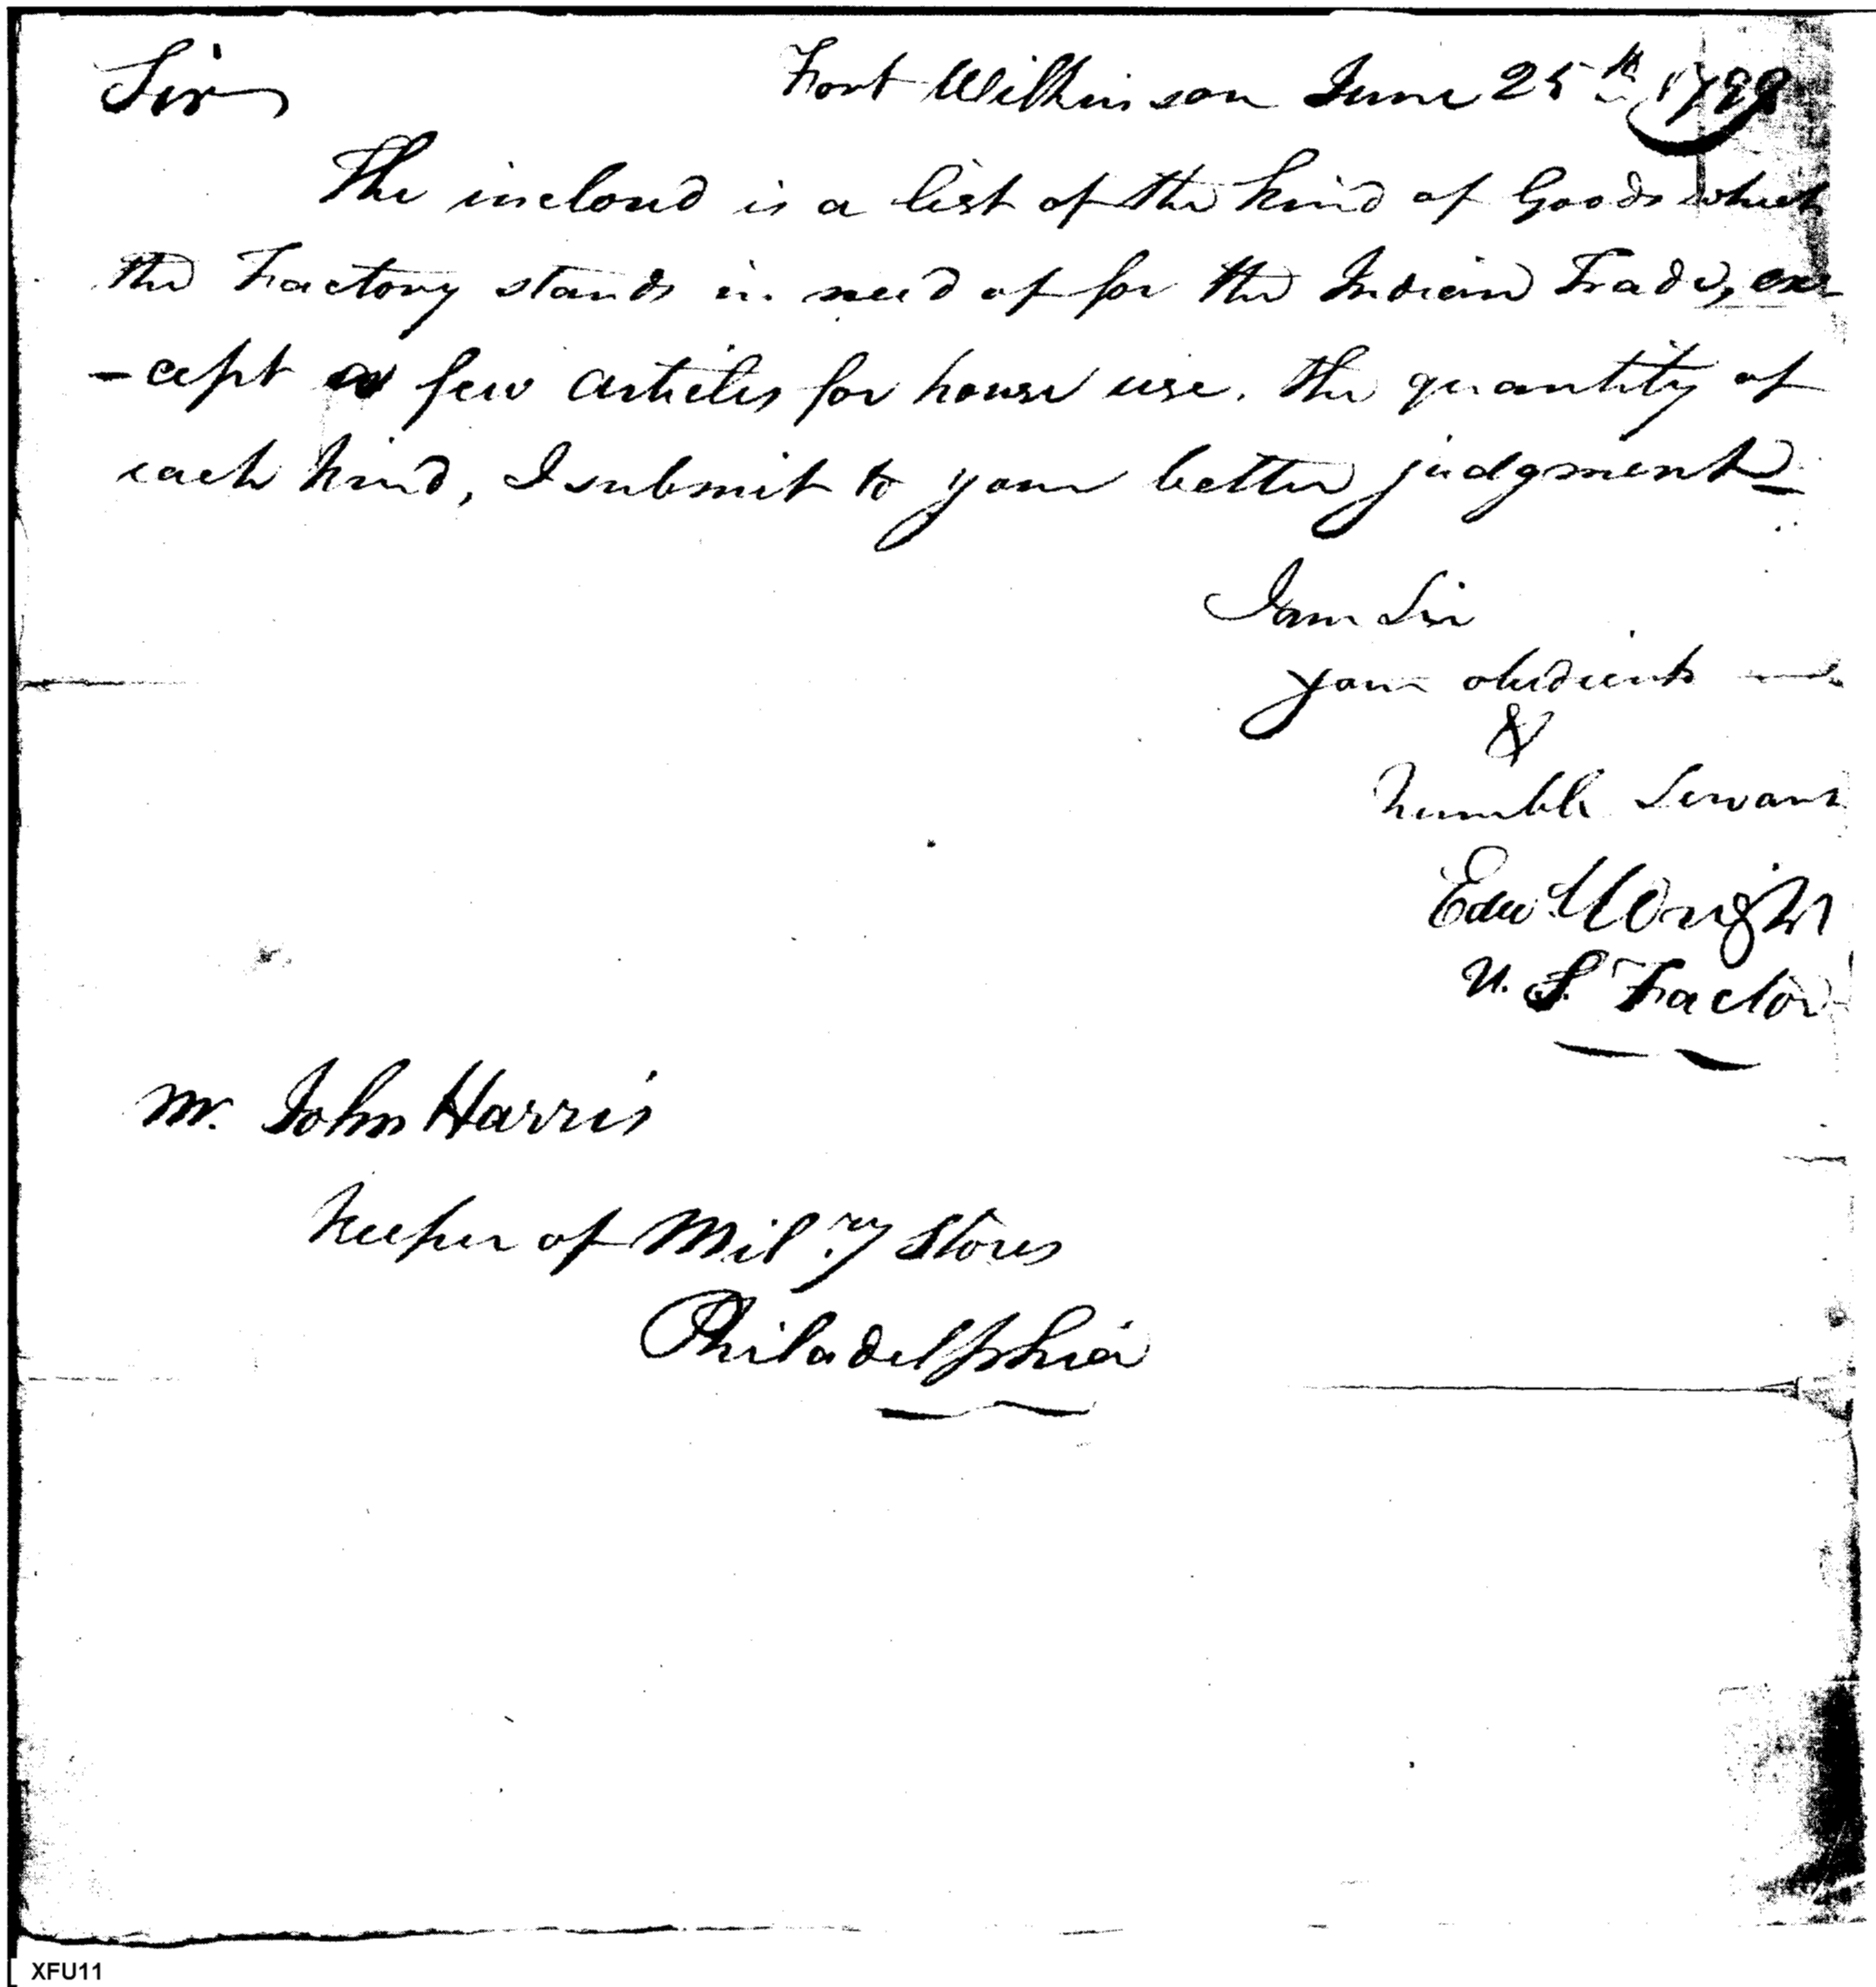 Sir Fort Wilkinson June 25th 1799
The inclosed is a list of the kind of Goods which
the Factory stands in need of for the Indian Trade, ex-
-cept a few articles for house use. the quantity of
each kind, I submit to your better judgment
I am Sir
your obedient
&
humble Servant
Edw Wright
U. S. Factor
Mr. John Harris
Keeper of Milry Stores
Philadelphia
XFU11